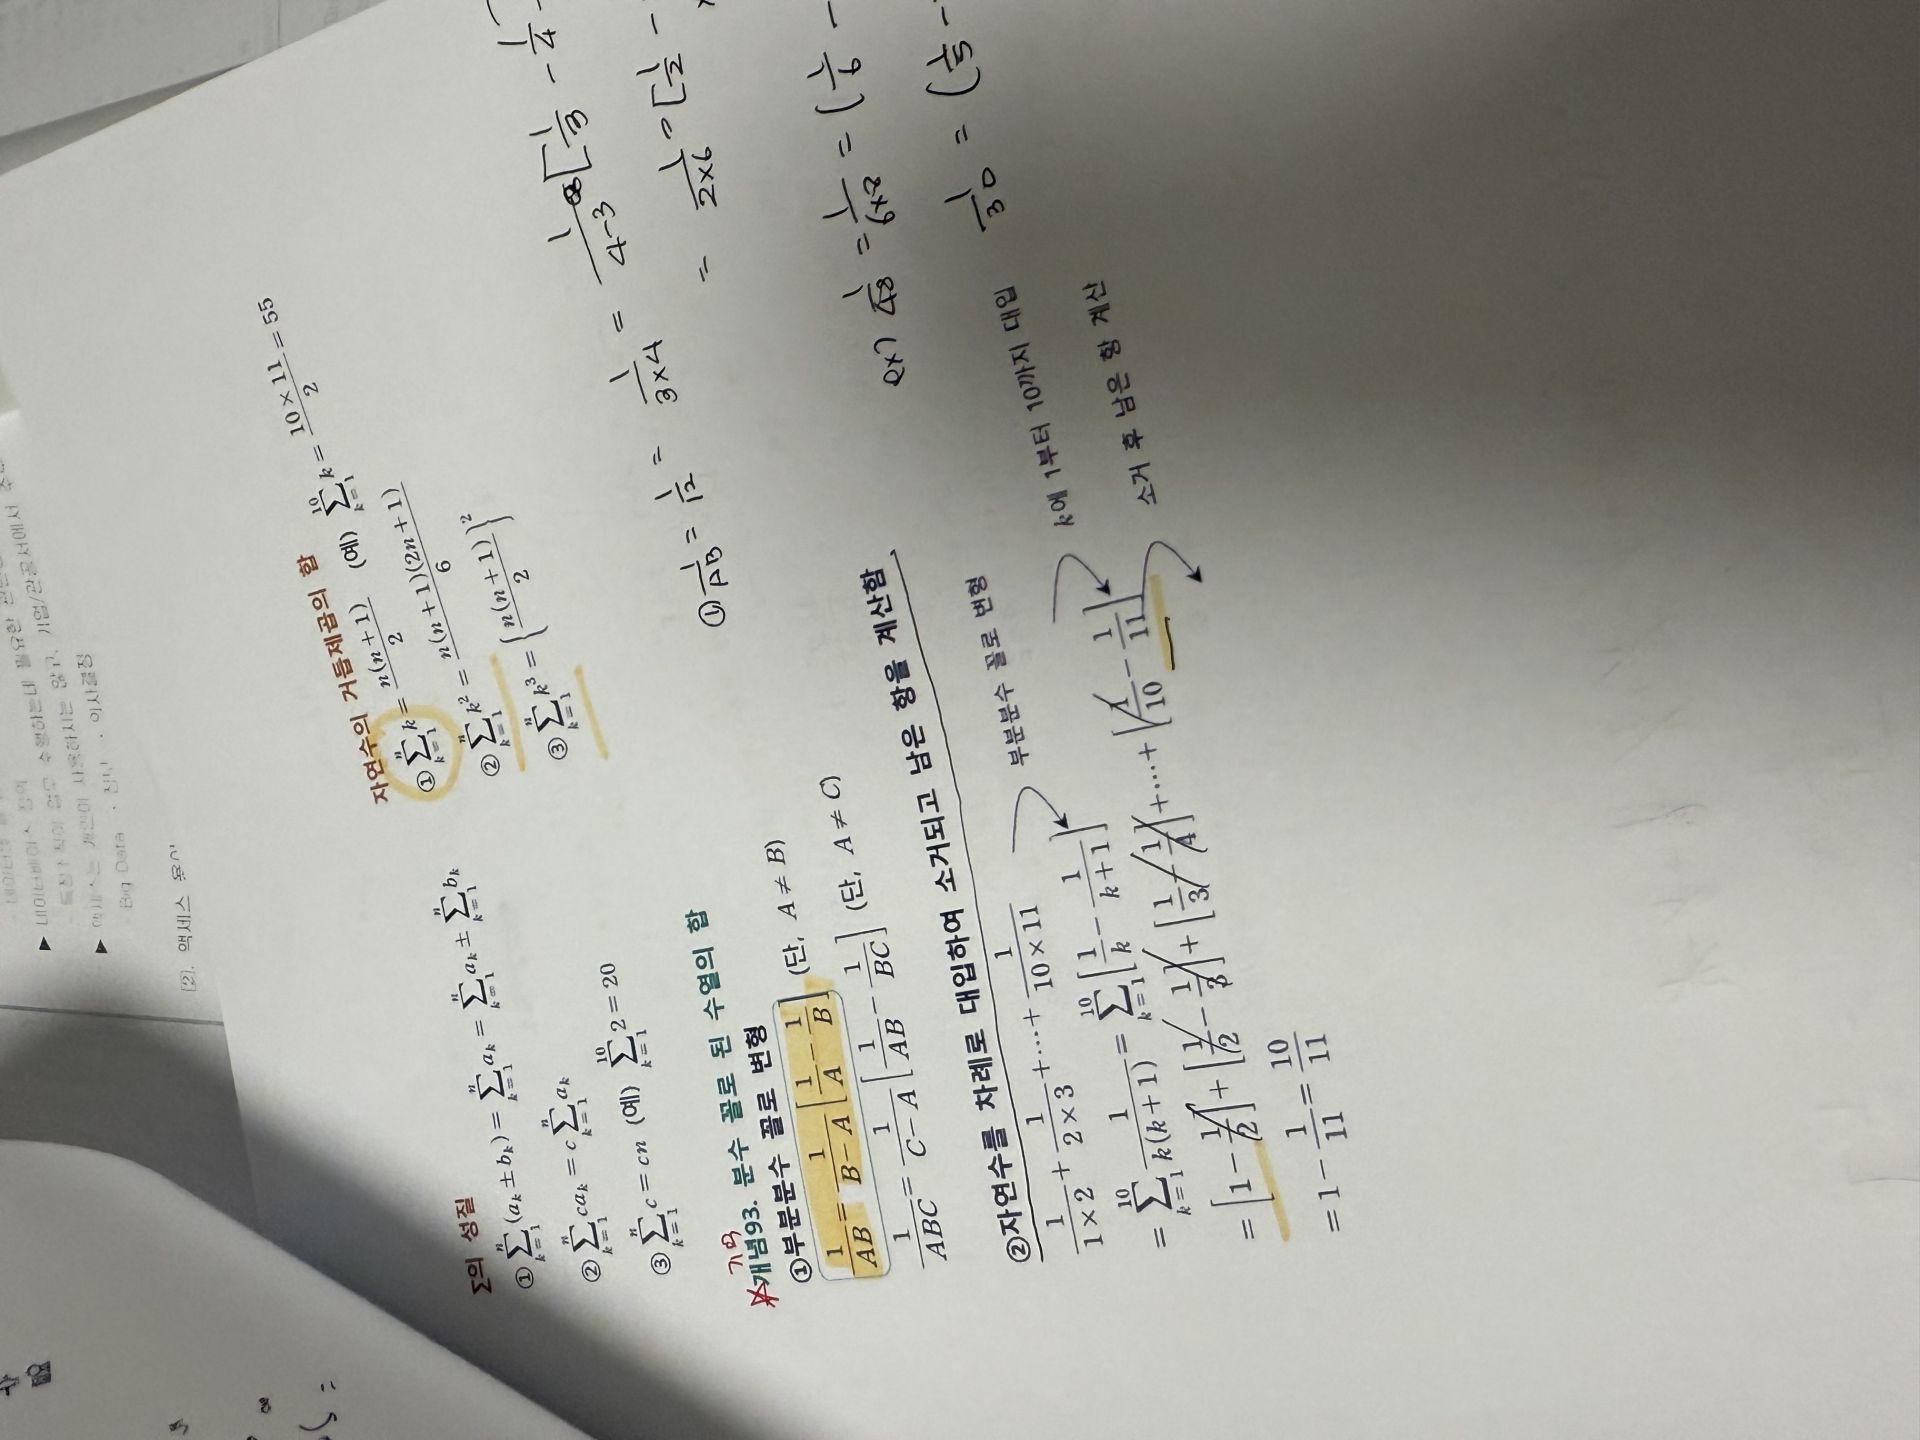 ▶ 데이터베이스 정의
Big Data
[2]. 액세스
Σ의 성질
① \sum_{k=1}^{n}(a_k ± b_k) = \sum_{k=1}^{n} a_k = \sum_{k=1}^{n} a_k ± \sum_{k=1}^{n} b_k
② \sum_{k=1}^{n} ca_k = c\sum_{k=1}^{n} a_k
③ \sum_{k=1}^{n} c = cn (예) \sum_{k=1}^{10} 2 = 20
자연수의 거듭제곱의 합
① \sum_{k=1}^{n} k = \frac{n(n+1)}{2} (예) \sum_{k=1}^{10} k = \frac{10×11}{2} = 55
② \sum_{k=1}^{n} k^2 = \frac{n(n+1)(2n+1)}{6}
③ \sum_{k=1}^{n} k^3 = \left\{\frac{n(n+1)}{2}\right\}^2
개념93. 분수 꼴로 된 수열의 합
①부분분수 꼴로 변형
\frac{1}{AB} = \frac{1}{B-A}\left[\frac{1}{A} - \frac{1}{B}\right] (단, A ≠ B)
\frac{1}{ABC} = \frac{1}{C-A}\left[\frac{1}{AB} - \frac{1}{BC}\right] (단, A ≠ C)
① \frac{1}{AB} = \frac{1}{12} = \frac{1}{3×4} = \frac{1}{4-3}[\frac{1}{3} - \frac{1}{4}
= \frac{1}{2×6} = [\frac{1}{2} -
ex) \frac{1}{48} = \frac{1}{6×8} = (\frac{1}{6} -
\frac{1}{30} = (\frac{1}{5} -
②자연수를 차례로 대입하여 소거되고 남은 항을 계산함
\frac{1}{1×2} + \frac{1}{2×3} + ⋯ + \frac{1}{10×11}
부분분수 꼴로 변형
= \sum_{k=1}^{10} \frac{1}{k(k+1)} = \sum_{k=1}^{10}\left[\frac{1}{k} - \frac{1}{k+1}\right]
k에 1부터 10까지 대입
= \left[1 - \frac{1}{2}\right] + \left[\frac{1}{2} - \frac{1}{3}\right] + \left[\frac{1}{3} - \frac{1}{4}\right] + ⋯ + \left[\frac{1}{10} - \frac{1}{11}\right]
소거 후 남은 항 계산
= 1 - \frac{1}{11} = \frac{10}{11}